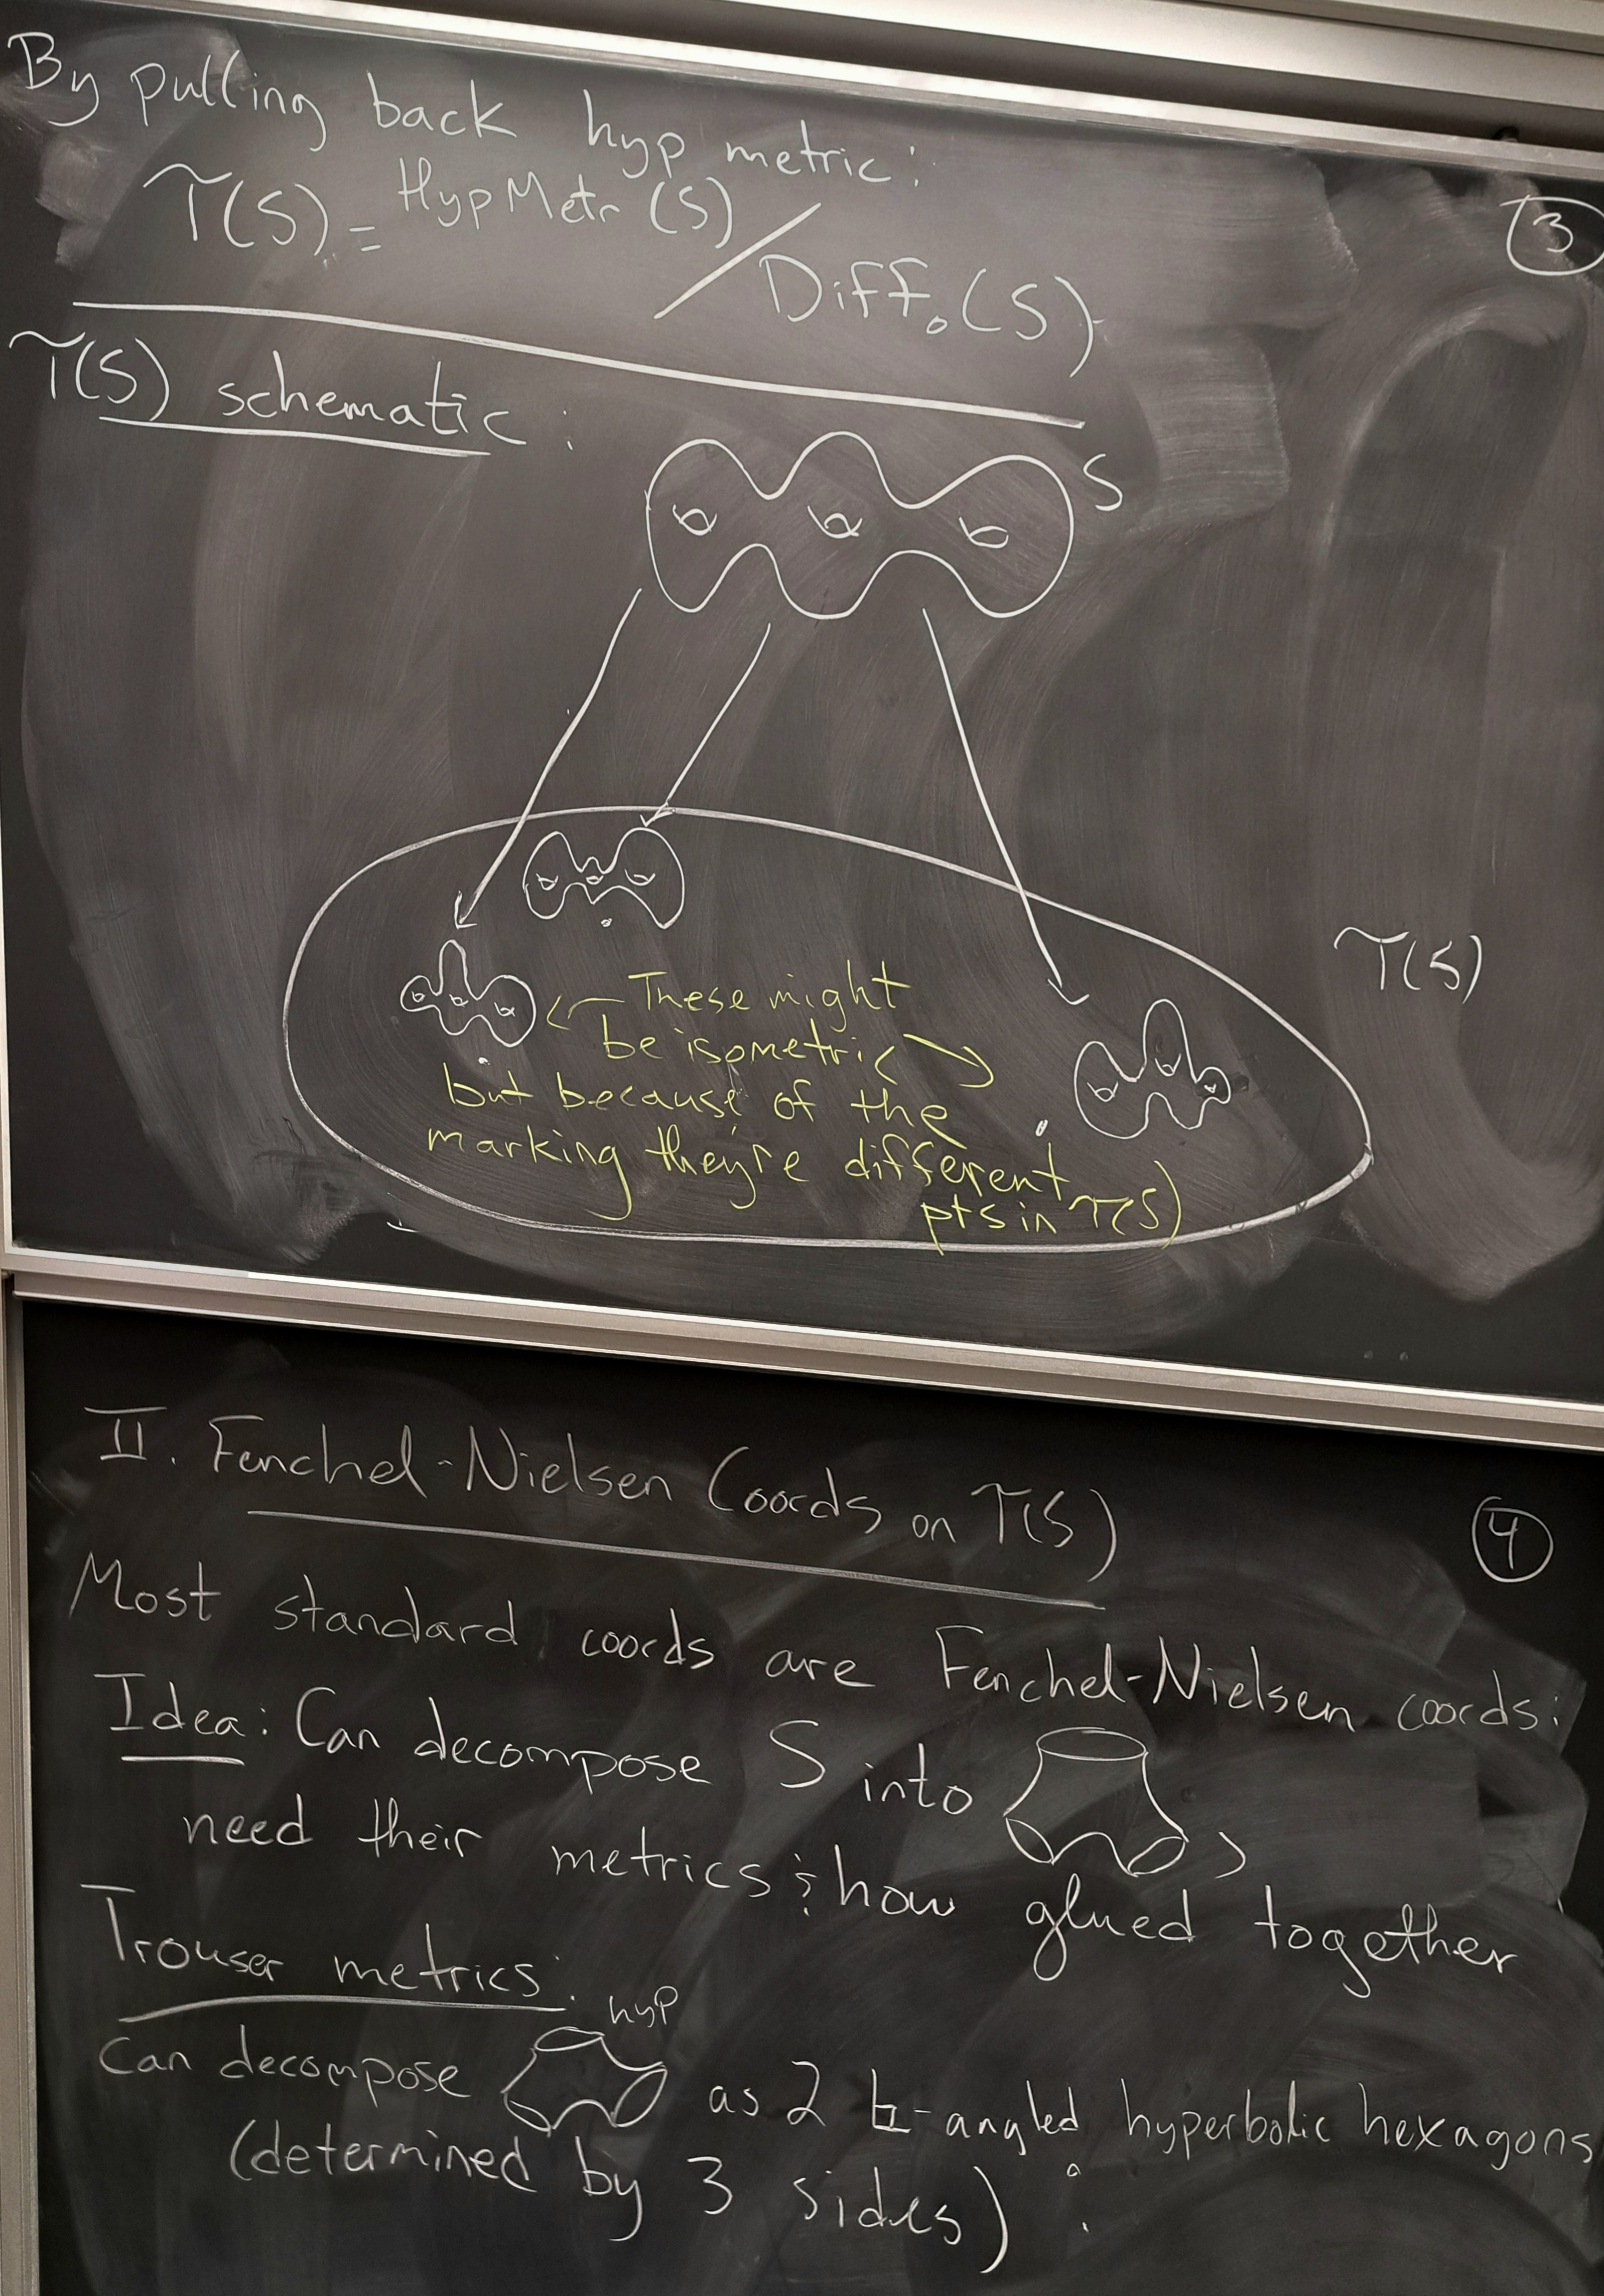 By pulling back hyp metric:
T(S) = HypMetr(S) / Diff₀(S)
③
T(S) schematic:
S
T(S)
These might
be isometric
but because of the
marking they're different
pts in T(S)
II. Fenchel-Nielsen Coords on T(S)
④
Most standard coords are Fenchel-Nielsen coords:
Idea: Can decompose S into ,
need their metrics & how glued together
Trouser metrics:
hyp
Can decompose as 2 ∟-angled hyperbolic hexagons
(determined by 3 sides):